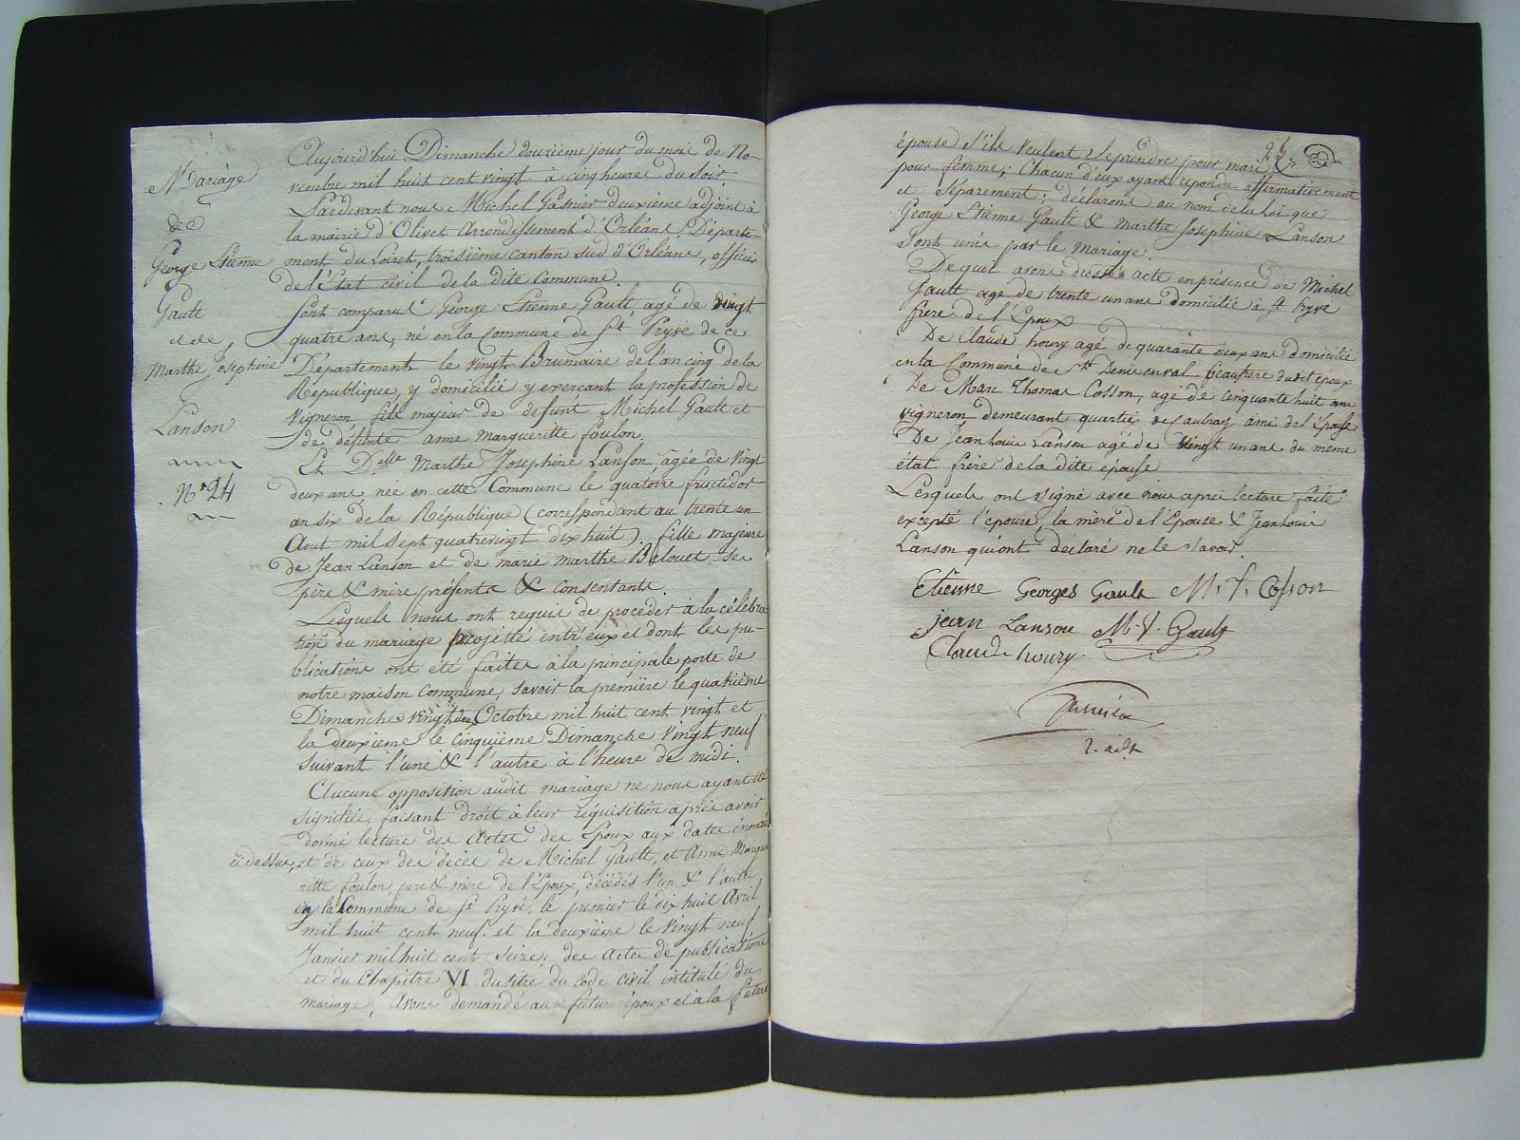 Mariage
de
George Etienne
Gault
et de
Marthe Josephine
Lanson
N.° 24
Aujourd'hui Dimanche douzieme jour du mois de No-
vembre mil huit cent vingt à cinq heures du soir
Pardevant nous Michel Gasnier deuxieme adjoint à
la mairie d'Olivet arrondissement d'Orléans Départe-
ment du Loiret, troisième canton sud d'Orléans, officier
de l'État civil de la dite Commune.
Sont comparus George Etienne Gault, agé de vingt
quatre ans, né en la Commune de St. Pryvé de ce
Département le vingt Brumaire de l'an cinq de la
République, y domicilié y exerçant la profession de
vigneron fils majeur de defunt Michel Gault et
de défunte anne margueritte foulon.
Et Delle Marthe Josephine Lanson, agée de vingt
deux ans née en cette Commune le quatorze fructidor
an six de la République (correspondant au trente un
Aout mil sept quatrevingt dix huit). fille majeure
de Jean Lanson et de marie marthe Belouet ses
père & mère présents & consentants.
Lesquels nous ont requis de proceder à la célébra
tion du mariage projetté entr'eux et dont les pu-
blications ont été faites à la principale porte de
notre maison Commune, savoir la première le quatrième
Dimanche vingt deux Octobre mil huit cent vingt et
la deuxieme le cinquième Dimanche vingt neuf
suivant l'une & l'autre à l'heure de midi.
Aucune opposition audit mariage ne nous ayant été
signifiée, faisant droit à leur réquisition après avoir
donné lecture des Actes des Epoux aux dates énoncées
ci dessus, et de ceux des décès de Michel Gault, et Anne Margue
ritte foulon, pere & mère de l'Epoux, décédés l'un & l'autre
en la Commune de St Pryvé, le premier le dix huit Avril
mil huit cent neuf et la deuxième le vingt neuf
Janvier mil huit cent seize, des actes de publications
et du Chapitre VI du titre du code civil intitulé du
mariage, avons demandé aux futur époux et à la future
épouse s'ils veulent se prendre pour mari &
pour femme; Chacun d'eux ayant repondu affirmativement
et séparement; déclarons au nom de la Loi que
George Etienne Gault & Marthe Josephine Lanson
sont unis par le mariage.
De quoi avons dressé acte en présence de Michel
Gault agé de trente un ans domicilié à St Pryvé
frère de l'Epoux
De Claude houry agé de quarante deux ans domicilié
en la Commune de St Denis en val beaufrere dudit époux
De Marc Thomas Cosson, agé de cinquante huit ans
vigneron demeurant quartier des aubray ami de l'Epouse
De Jean Louis Lanson agé de vingt un ans du même
état frère de la dite épouse
Lesquels ont signé avec nous après lecture faite
excepté l'épouse, la mère de l'Epouse & Jean Louis
Lanson qui ont déclaré ne le savoir.
Etienne Georges Gault M. T. Cosson
jean Lanson M. V. Gault
Claude houry